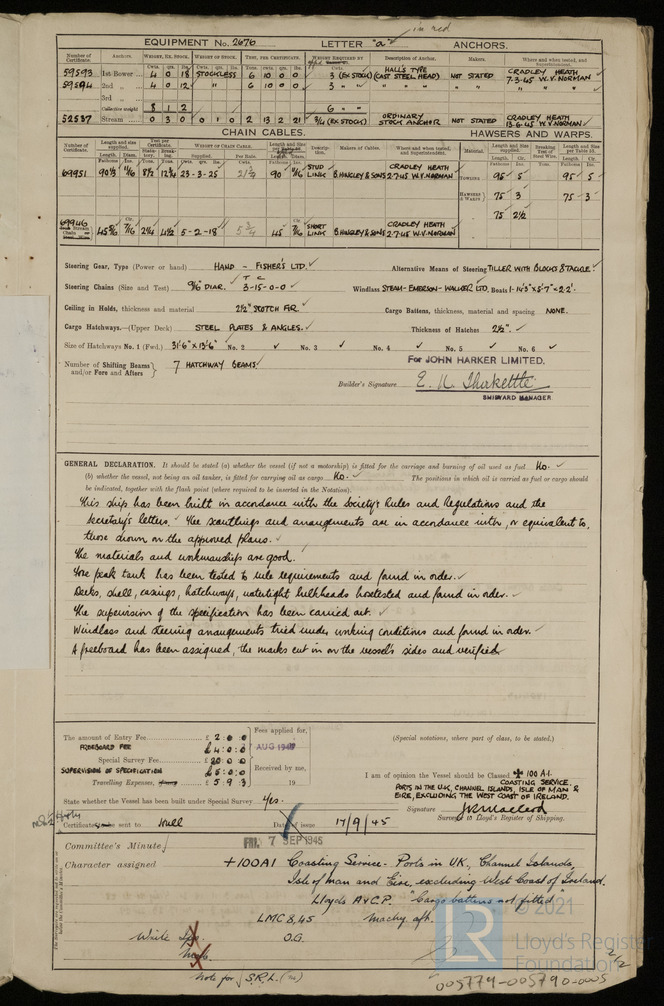 in red
EQUIPMENT No. 2676 LETTER "a" ANCHORS.
Number of Certificate. Anchors. WEIGHT, EX. STOCK. WEIGHT OF STOCK. TEST, PER CERTIFICATE. WEIGHT REQUIRED BY Description of Anchor. Makers. Where and when tested, and Superintendent.
59593 1st Bower 4 0 18 STOCKLESS 6 10 0 0 3 (EX STOCK) HALL'S TYPE (CAST STEEL HEAD) NOT STATED CRADLEY HEATH
59594 2nd „ 4 0 12 „ 6 10 0 0 3 „ „ 7-3-45 W.V. NORMAN
3rd „
Collective weight 8 1 2 6 „
52537 Stream 0 3 0 0 1 0 2 13 2 21 3/4 (EX STOCK) ORDINARY STOCK ANCHOR NOT STATED CRADLEY HEATH 13-6-45 W.V. NORMAN
CHAIN CABLES. HAWSERS AND WARPS.
69951 23-3-25 90 11/16 STUD LINK B. HINGLEY & SONS CRADLEY HEATH 2-7-45 W.V. NORMAN TOWLINE 95 5 95 5
HAWSERS & WARPS 75 3 75 - 3
75 2½
69946 5-2-18 45 7/16 SHORT LINK B. HINGLEY & SONS CRADLEY HEATH 2-7-45 W.V. NORMAN
Steering Gear, Type (Power or hand) HAND - FISHER'S LTD. Alternative Means of Steering TILLER WITH BLOCKS & TACKLE.
Steering Chains (Size and Test) 9/16" DIAR. T C 3-15-0-0 Windlass STEAM-EMERSON-WALKER LTD. Boats 1-14'3" x 5'7" x 2'2".
Ceiling in Holds, thickness and material 2½" SCOTCH FIR. Cargo Battens, thickness, material and spacing NONE.
Cargo Hatchways.—(Upper Deck) STEEL PLATES & ANGLES. Thickness of Hatches 2½".
Size of Hatchways No. 1 (Fwd.) 31'-6" x 13'-6" No. 2 No. 3 No. 4 No. 5 No. 6
Number of Shifting Beams and/or Fore and Afters 7 HATCHWAY BEAMS
For JOHN HARKER LIMITED.
Builder's Signature E. N. Thirkettle
SHIPYARD MANAGER
GENERAL DECLARATION. It should be stated (a) whether the vessel (if not a motorship) is fitted for the carriage and burning of oil used as fuel No.
(b) whether the vessel, not being an oil tanker, is fitted for carrying oil as cargo No. The positions in which oil is carried as fuel or cargo should
be indicated, together with the flash point (where required to be inserted in the Notation).
This ship has been built in accordance with the Society's Rules and Regulations and the
Secretary's letters. The scantlings and arrangements are in accordance with, or equivalent to,
those shown on the approved plans.
The materials and workmanship are good.
Fore peak tank has been tested to rule requirements and found in order.
Decks, shell, casings, hatchways, watertight bulkheads hosetested and found in order.
The supervision of the specification has been carried out.
Windlass and steering arrangements tried under working conditions and found in order.
A freeboard has been assigned, the marks cut in on the vessel's sides and verified
The amount of Entry Fee £ 2 : 0 : 0 Fees applied for,
FREEBOARD FEE £ 4 : 0 : 0 AUG 1945
Special Survey Fee £ 20 0 0 Received by me,
SUPERVISION OF SPECIFICATION £ 5 : 0 : 0
Travelling Expenses, if any £ 5 9 3 19
(Special notations, where part of class, to be stated.)
I am of opinion the Vessel should be Classed ✠ 100 A1.
COASTING SERVICE,
PORTS IN THE U.K., CHANNEL ISLANDS, ISLE OF MAN &
EIRE, EXCLUDING THE WEST COAST OF IRELAND.
State whether the Vessel has been built under Special Survey Yes.
Signature J.R. Macleod
Surveyor to Lloyd's Register of Shipping.
Certificate to be sent to Hull Date of issue 17/9/45
Committee's Minute FRI. 7 SEP 1945
Character assigned +100A1 Coasting Service - Ports in UK, Channel Islands,
Isle of Man and Eire, excluding West Coast of Ireland.
Lloyds A & C.P. "Cargo battens not fitted"
LMC 8,45 Machy aft.
O.G.
Write
Note for S.R.L.
LR © 2021
Lloyd's Register
Foundation
2/2
005779-005790-0005